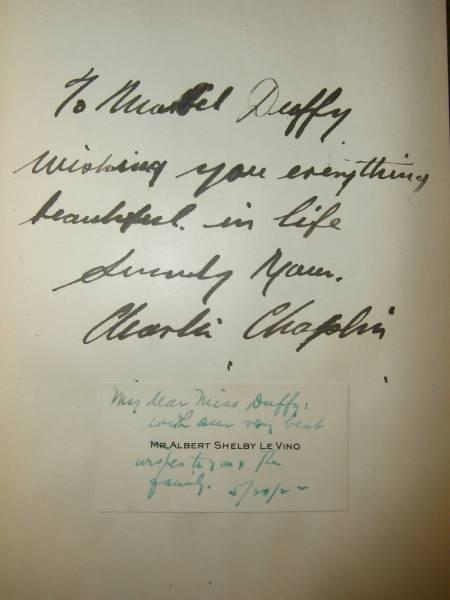 To Mabel Duffy
Wishing you everything
beautiful. in life
Sincerely Yours.
Charlie Chaplin
My dear Miss Duffy:
with our very best
MR. ALBERT SHELBY LE VINO
wishes to you & the
family. 5/20/22